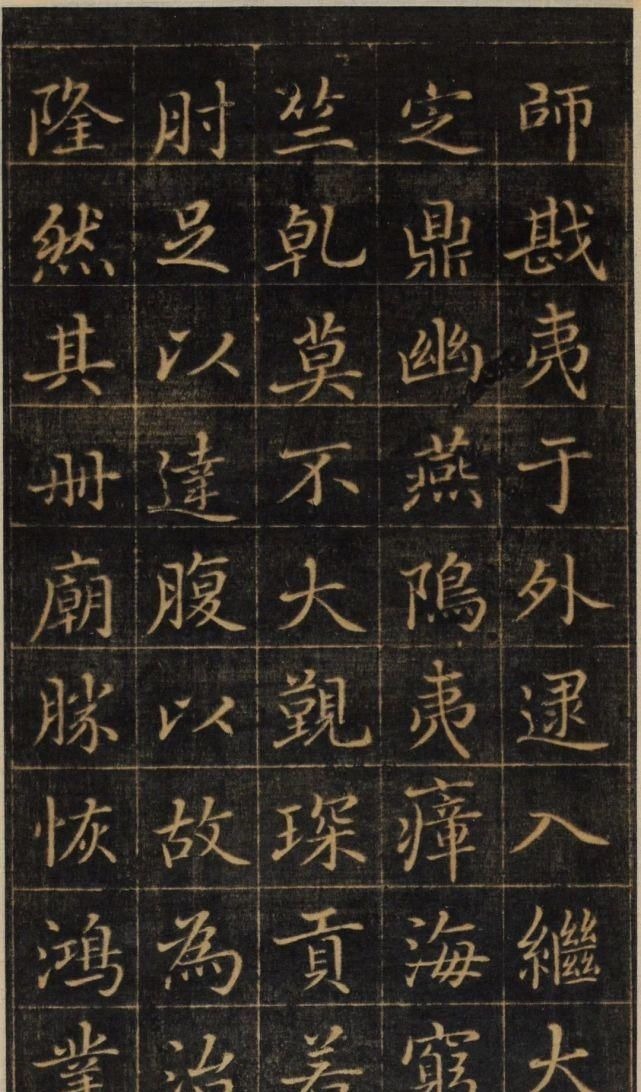 師戡夷于外逮入繼大
定鼎幽燕隝夷瘴海窮
竺乹莫不大覲琛貢若
肘足以達腹以故為治
隆然其册廟勝恢鴻業